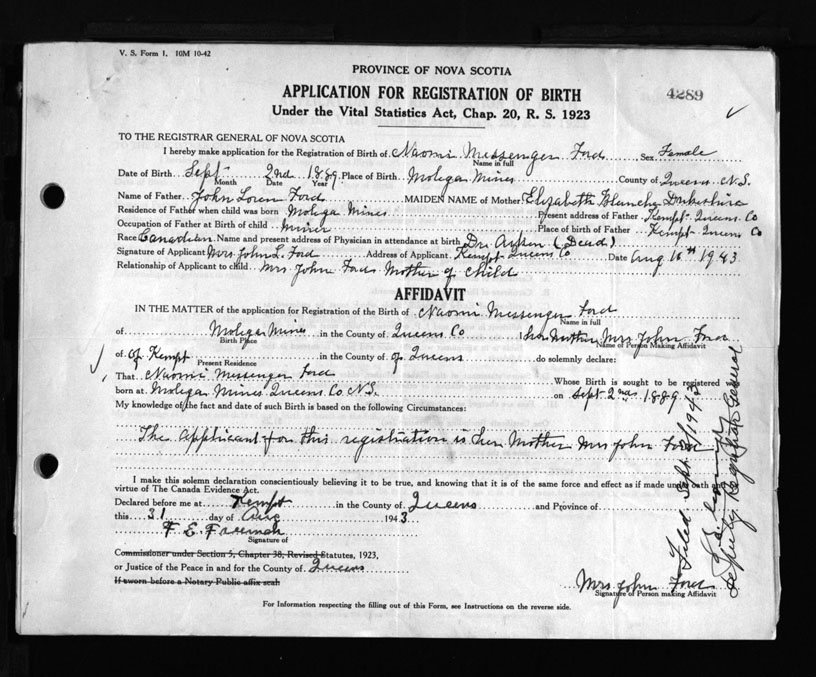 V. S. Form 1. 10M 10-42
PROVINCE OF NOVA SCOTIA
4289
APPLICATION FOR REGISTRATION OF BIRTH
Under the Vital Statistics Act, Chap. 20, R. S. 1923
TO THE REGISTRAR GENERAL OF NOVA SCOTIA
I hereby make application for the Registration of Birth of Naomi Messenger Ford Sex Female
Name in full
Date of Birth Sept 2nd 1889 Place of Birth Molega Mines County of Queens N.S.
Month Date Year
Name of Father John Loren Ford MAIDEN NAME of Mother Elizabeth Blanche
Residence of Father when child was born Molega Mines Present address of Father Kempt Queens Co
Occupation of Father at Birth of child Miner Place of birth of Father Kempt Queens Co
Race Canadian Name and present address of Physician in attendance at birth Dr (Dead)
Signature of Applicant Mrs John L. Ford Address of Applicant Kempt Queens Co Date Aug 16th 1943
Relationship of Applicant to child Mrs John Ford Mother of Child
AFFIDAVIT
IN THE MATTER of the application for Registration of the Birth of Naomi Messenger Ford
Name in full
of Molega Mines in the County of Queens Co I her Mother Mrs John Ford
Birth Place Name of Person Making Affidavit
of of Kempt in the County of of Queens do solemnly declare:
Present Residence
That Naomi Messenger Ford Whose Birth is sought to be registered was
born at Molega Mines Queens Co N.S. on Sept 2nd 1889
My knowledge of the fact and date of such Birth is based on the following Circumstances:
The Applicant for this registration is her Mother Mrs John Ford
I make this solemn declaration conscientiously believing it to be true, and knowing that it is of the same force and effect as if made under oath and
virtue of The Canada Evidence Act.
Declared before me at Kempt in the County of Queens and Province of
this 31 day of Aug 1943
F. E. Freeman
Signature of
Commissioner under Section 5, Chapter 38, Revised Statutes, 1923,
or Justice of the Peace in and for the County of Queens
If sworn before a Notary Public affix seal
Mrs John Ford
Signature of Person making Affidavit
For Information respecting the filling out of this Form, see Instructions on the reverse side.
Filed Sept 1943
Deputy Registrar General